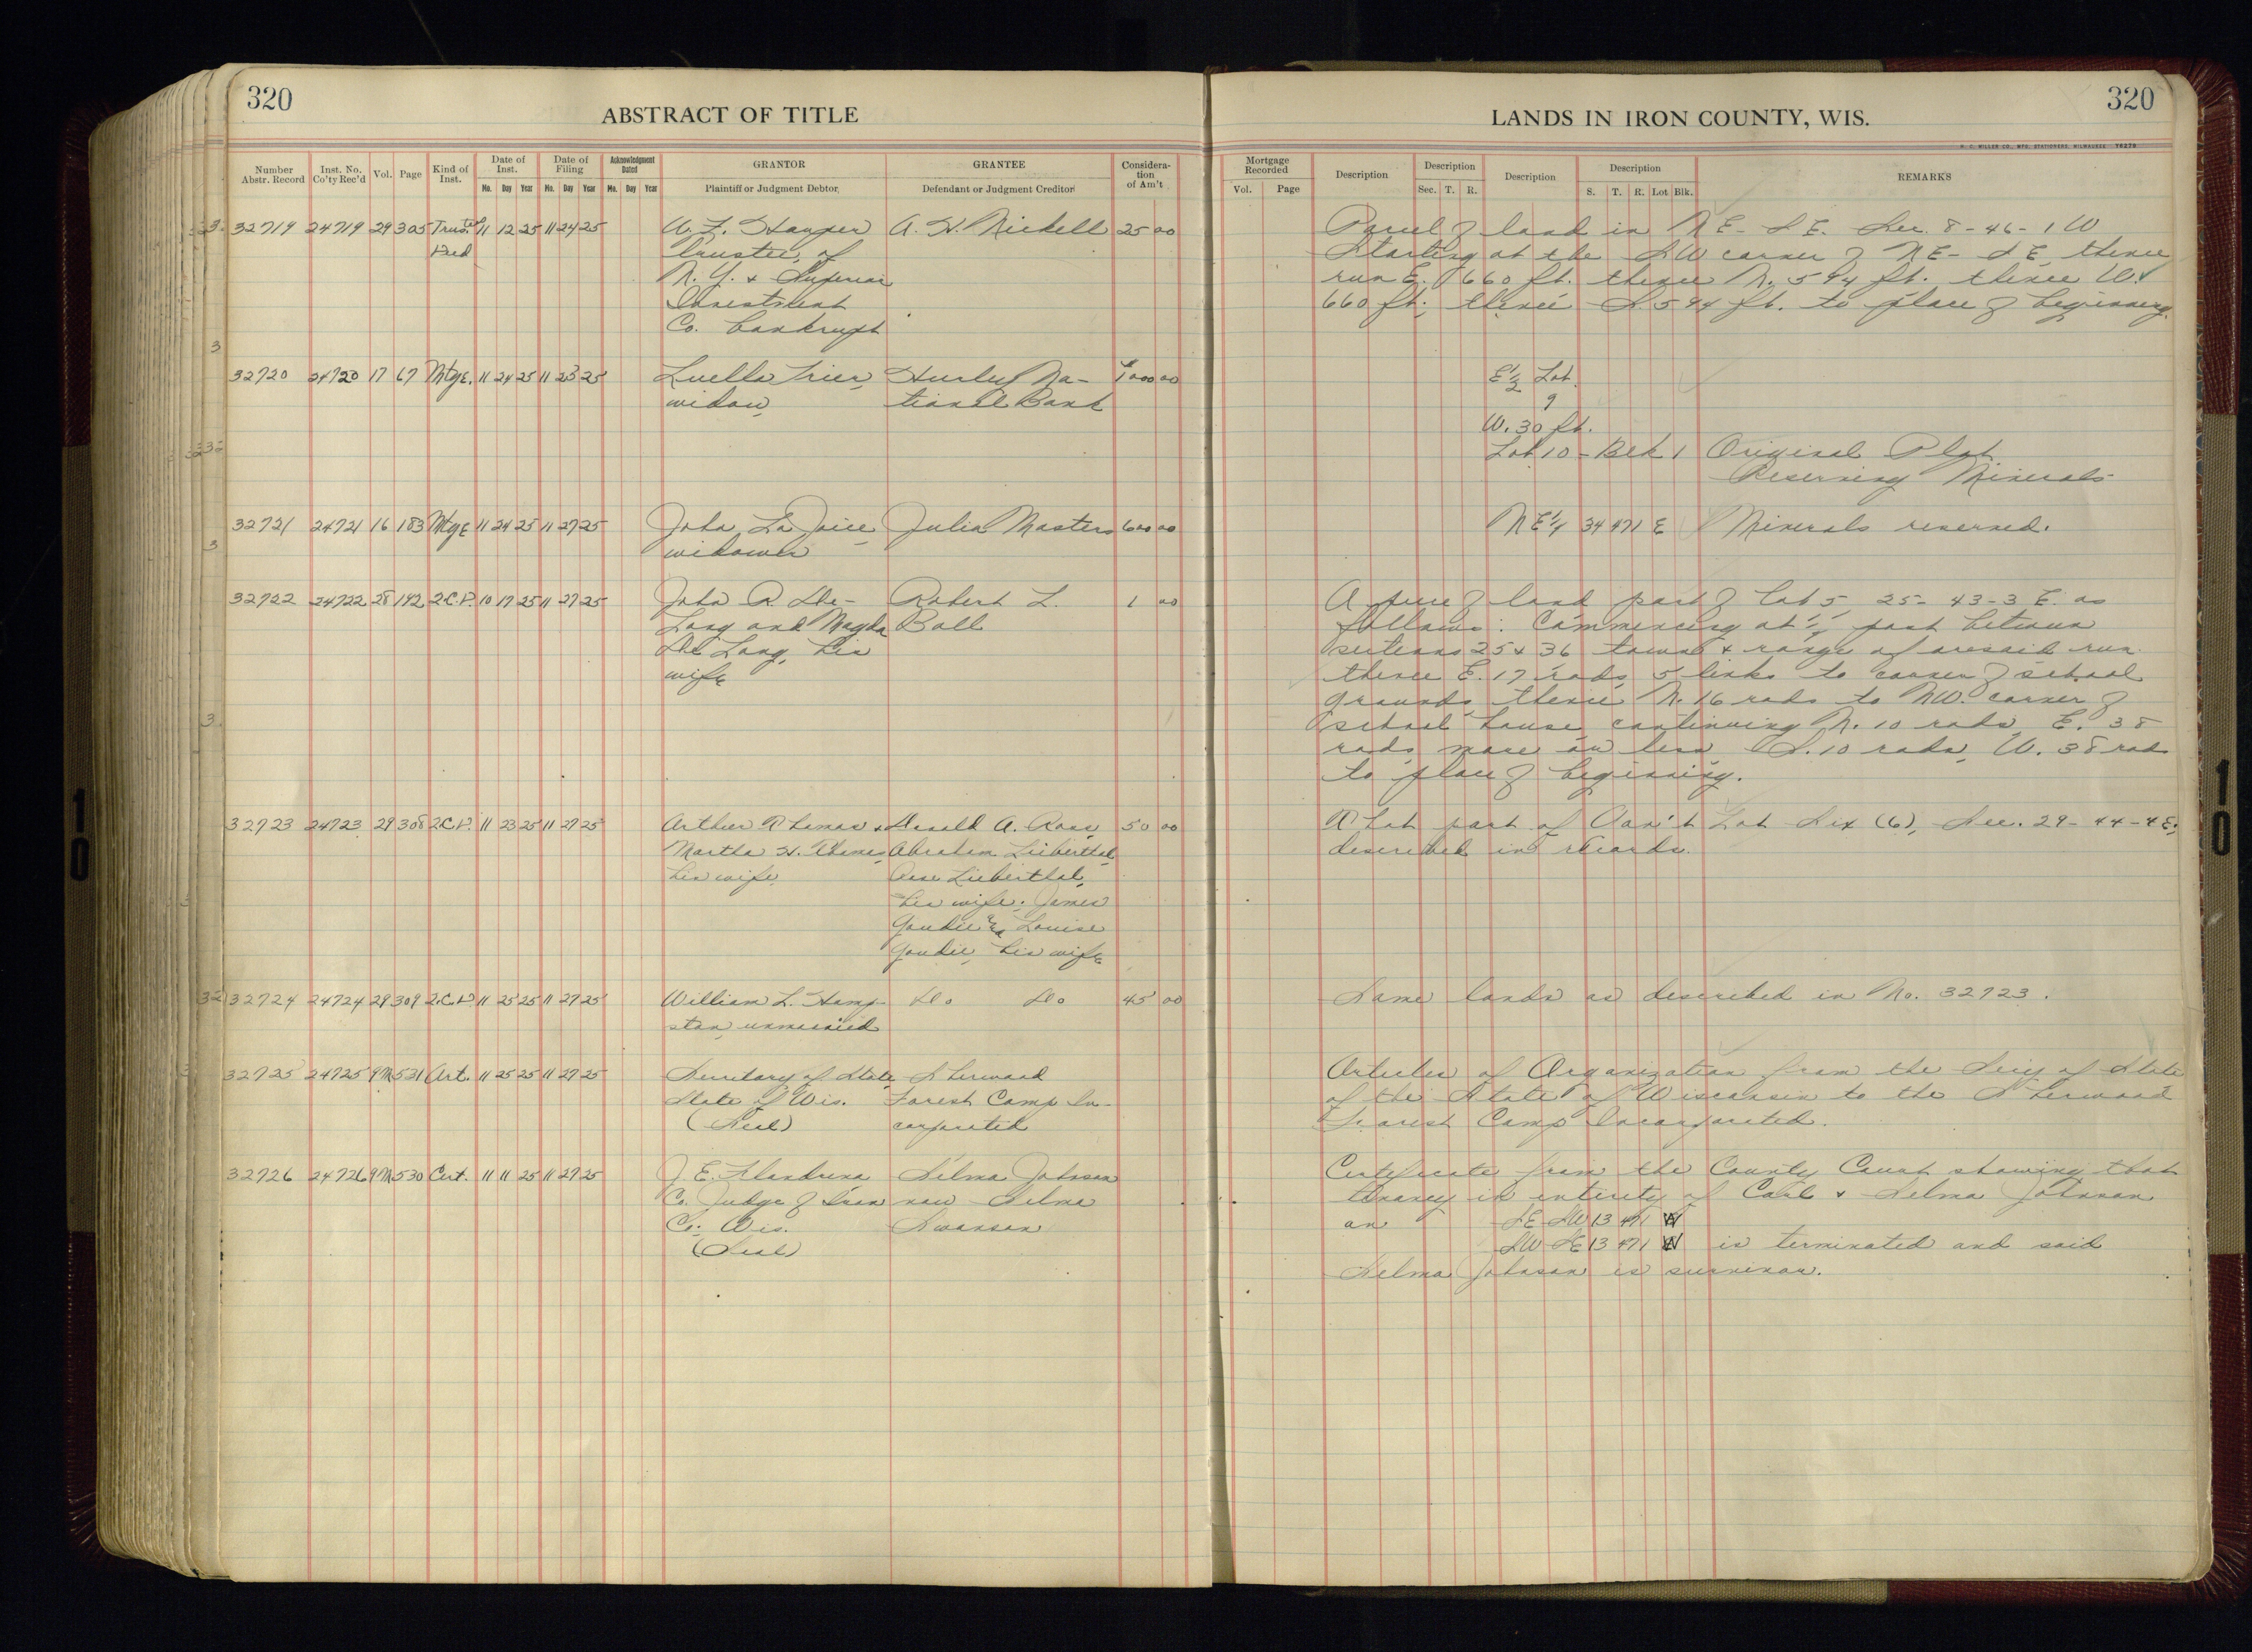 320
ABSTRACT OF TITLE
Number Abstr. Record
Inst. No. Co'ty Rec'd
Vol.
Page
Kind of Inst.
Date of Inst.
Mo. Day Year
Date of Filing
Mo. Day Year
Acknowledgment Dated
Mo. Day Year
GRANTOR
Plaintiff or Judgment Debtor
GRANTEE
Defendant or Judgment Creditor
Consideration of Am't
32719 24719 29 305 11 12 25 11 24 25 W. F. Harper A. H. Nickell 25 00
Deed Trustee, of
N. Y. & Superior
Investment
Co. bankrupt
32720 24720 17 67 Mtge. 11 24 25 11 25 Luella Trier, Hurley Na- 1000 00
widow, tional Bank
32721 24721 16 183 Mtge 11 24 25 11 27 25 John La Joice, Julia Masters 600 00
widower
32722 24722 28 192 2.C.D. 10 17 25 11 27 25 John A. De- Robert L. 1 00
Long and Magda Ball
De Long, his
wife
32723 24723 29 308 2.C.D. 11 23 25 11 27 25 Arthur Thomas & Donald A. Ross, 50 00
Martha H. Thomas, Abraham Lieberthal,
his wife Rose Lieberthal,
his wife; James
Goudie & Louise
Goudie, his wife
32724 24724 29 309 2.C.D. 11 25 25 11 27 25 William L. Hamp- Do Do 45 00
ston, unmarried
32725 24725 9M 531 Art. 11 25 25 11 27 25 Secretary of State, Sherwood
State of Wis. Forest Camp In-
(Seal) corporated
32726 24726 9M 530 Cert. 11 11 25 11 27 25 J. E. Flandrena Selma Johnson
Co. Judge of Iron now Selma
Co. Wis. Swanson
(Seal)
LANDS IN IRON COUNTY, WIS.
320
H. C. MILLER CO., MFG. STATIONERS, MILWAUKEE
Mortgage Recorded
Vol. Page
Description
Description
Sec. T. R.
Description
Description
S. T. R. Lot Blk.
REMARKS
Parcel of land in NE- SE- Sec. 8-46-1W
Starting at the SW corner of NE- SE, thence
run E. 660 ft. thence N. 594 ft. thence W.
660 ft; thence S. 594 ft. to place of beginning.
E½ Lot
9
W. 30 ft.
Lot 10 - Blk 1 Original Plat
Reserving Minerals
NE¼ 34 47 1 E Minerals reserved.
A piece of land part of Lot 5 25- 43-3 E. as
follows: Commencing at ¼ post between
sections 25 & 36 town & range aforesaid run
thence E. 17 rods, 5 links to corner of school
grounds, thence N. 16 rods to NW. corner of
school house, continuing N. 10 rods, E. 38
rods, more or less S. 10 rods, W. 38 rods
to place of beginning.
A Lot part of Gov't Lot Six (6), Sec. 29- 44-4E;
described in records.
Same lands as described in No. 32723.
Articles of Organization from the Sec'y of State
of the State of Wisconsin to the Sherwood
Forest Camp Incorporated.
Certificate from the County Court showing that
tenancy in entirety of Carl & Selma Johnson
on SE SW 13 47 1 W
SW SE 13 47 1 W is terminated and said
Selma Johnson is survivor.